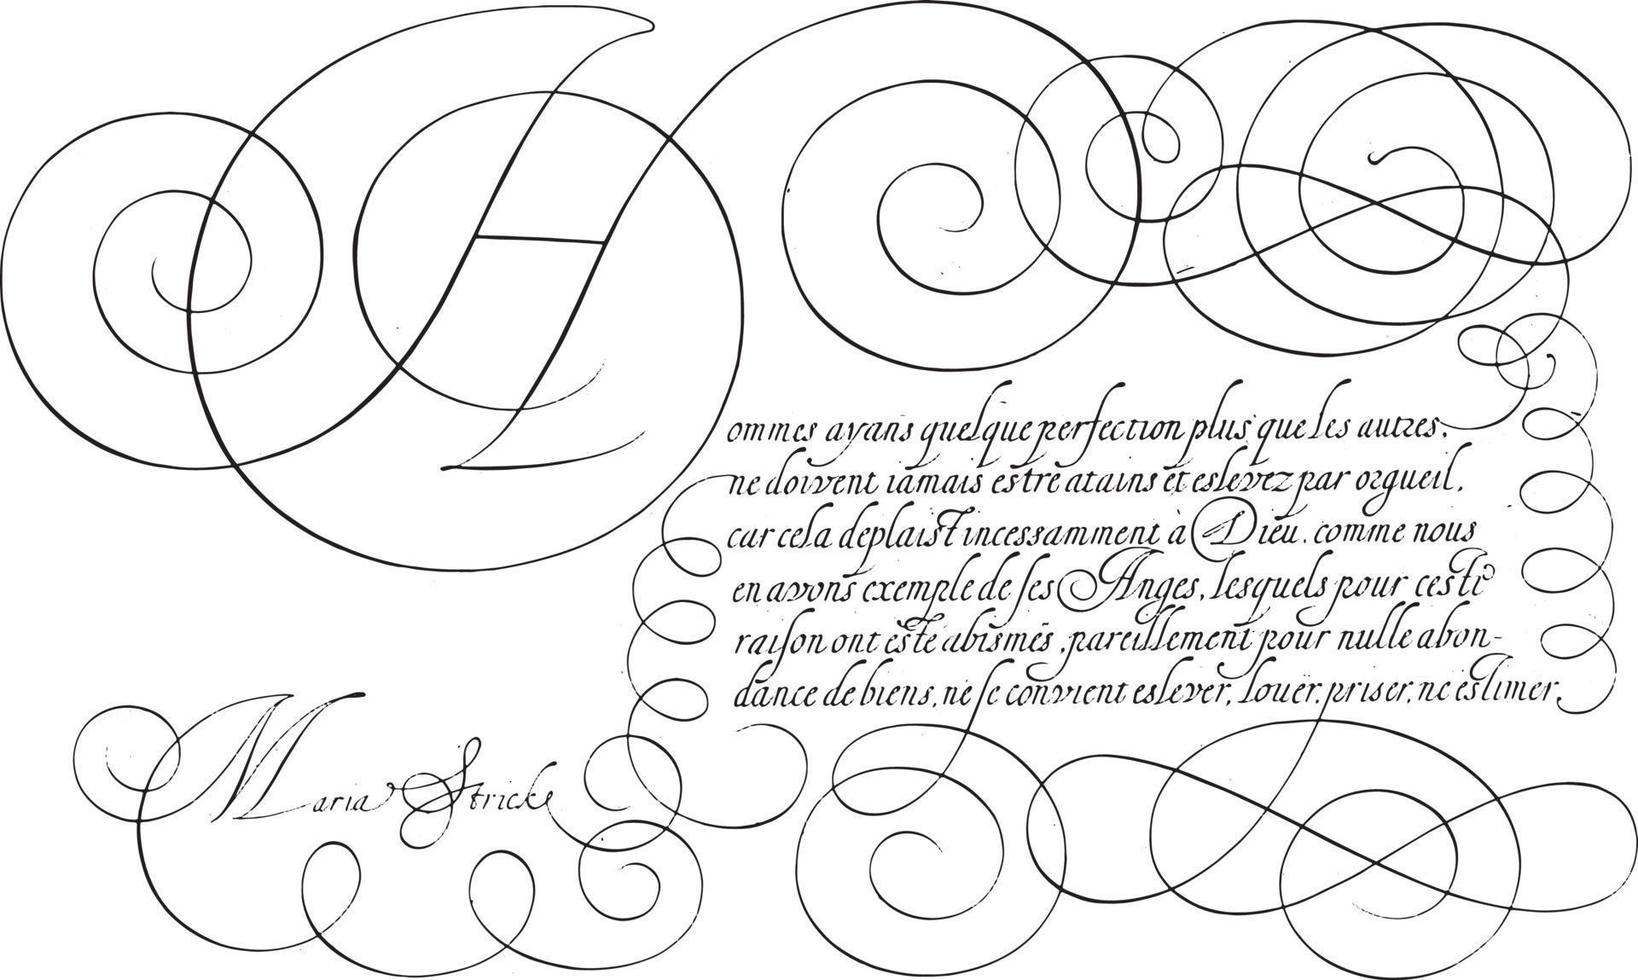 Hommes ayans quelque perfection plus que les autres.
ne doivent iamais estre atains et eslevez par orgueil,
car cela deplaist incessamment à Dieu. comme nous
en avons exemple de ses Anges, lesquels pour ceste
raison ont esté abismés, pareillement pour nulle abon-
dance de biens, ne se convient eslever, louër, priser, ne estimer.
Maria Stricke